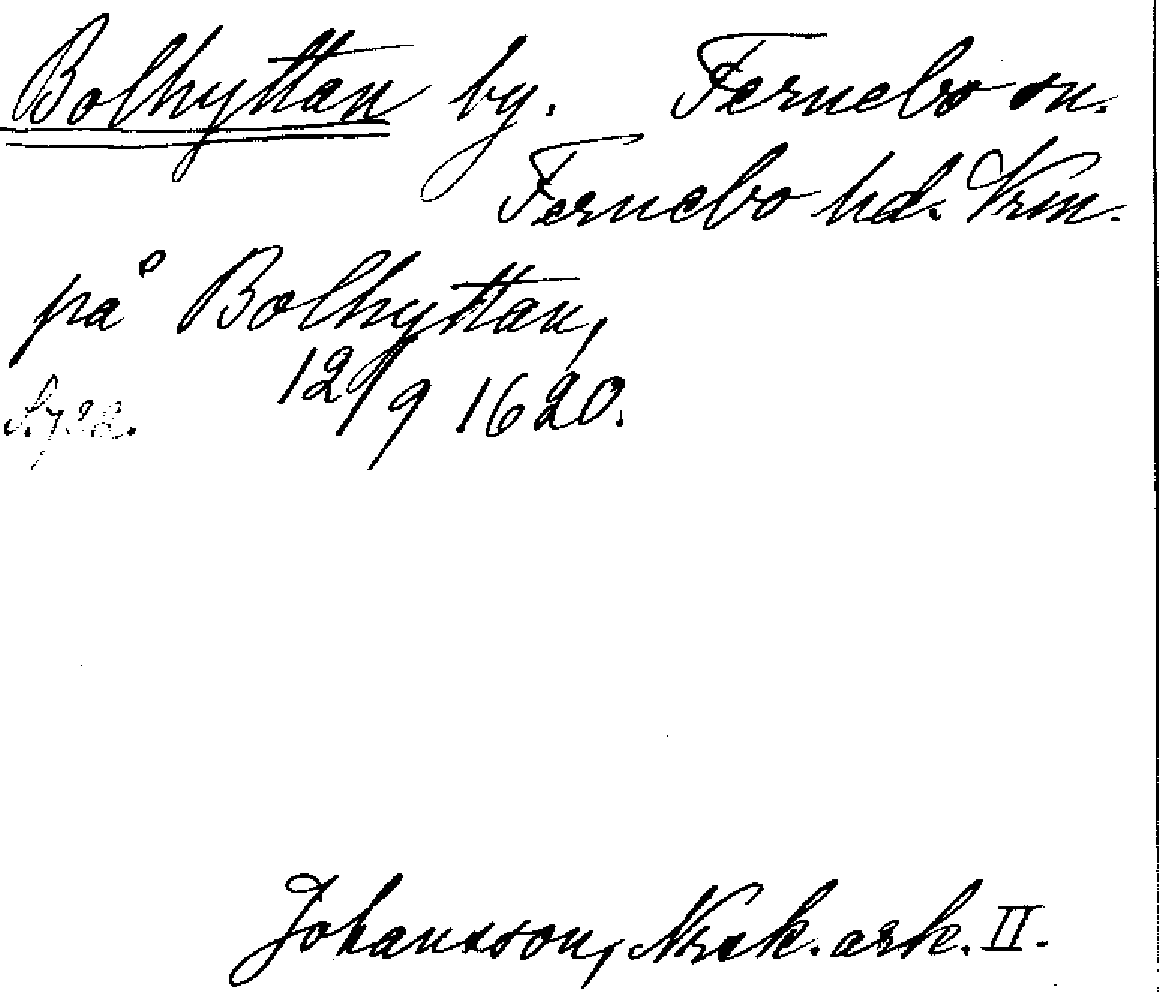 Bolhyttan by. Fernebo sn.
Fernebo hd. Vrm.
på Bolhyttan,
12/9 1620.
Johansson, Norsk. ark. II.